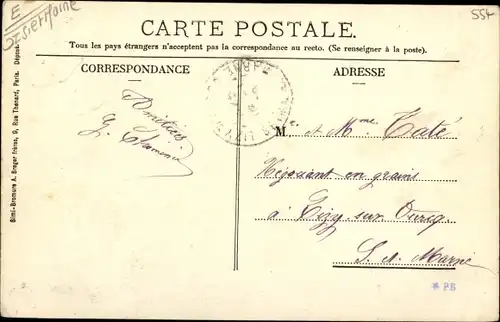 E
SteinMoine
557
CARTE POSTALE.
Tous les pays étrangers n'acceptent pas la correspondance au recto. (Se renseigner à la poste).
CORRESPONDANCE
ADRESSE
Simi-Bromure A. Breger frères, 9, Rue Thénard, Paris. Déposé.
MARNE
Amitiés
M. et Mme Taté
Négociant en grains
à Lizy sur Ourcq
S. et Marne
* PB